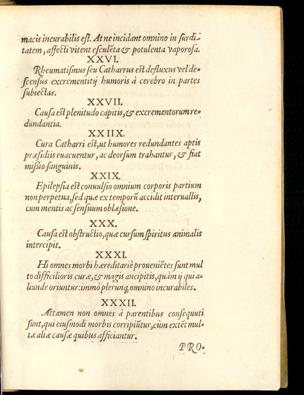 macis incurabilis est. At ne incidant omnino in surdi-
tatem, affecti vitent esculēta & potulenta vaporosa.
XXVI.
Rheumatismus seu Catharrus est defluxus vel de-
scensus excrementitij humoris à cerebro in partes
subiectas.
XXVII.
Causa est plenitudo capitis, & excrementorum re-
dundantia.
XXIIX.
Cura Catharri est, ut humores redundantes aptis
præsidiis euacuentur, ac deorsum trahantur, & fiat
missio sanguinis.
XXIX.
Epilepsia est conuulsio omnium corporis partium
non perpetua, sed quæ ex temporū accidit interuallis,
cum mentis ac sensuum oblæsione.
XXX.
Causa est obstructio, quæ cursum spiritus animalis
intercipit.
XXXI.
Hi omnes morbi hæreditariè proueniētes sunt mul
to difficilioris curæ, & magis ancipitis, quàm ij qui a-
liunde oriuntur: immò plerunq; omnino incurabiles.
XXXII.
Attamen non omnes à parentibus consequuti
sunt, qui eiusmodi morbis corripiūtur, cùm extēt mul-
tæ aliæ causæ quibus afficiantur.
PRO-